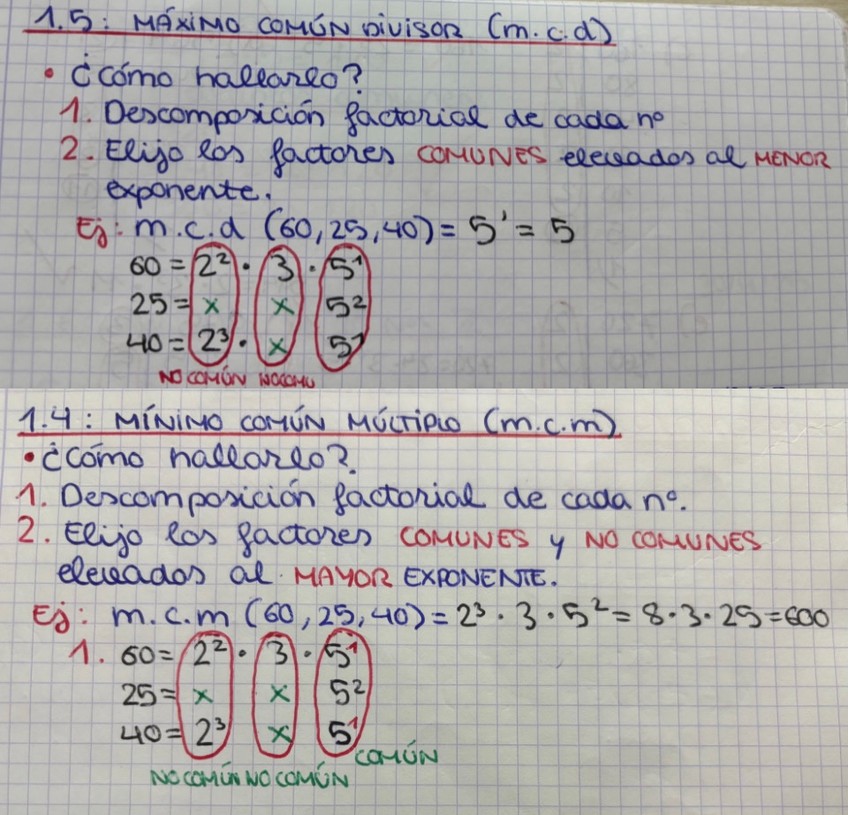 1.5: MÁXIMO COMÚN DIVISOR (m.c.d)
• ¿Cómo hallarlo?
1. Descomposición factorial de cada nº
2. Elijo los factores COMUNES elevados al MENOR
exponente.
Ej: m.c.d (60,25,40) = 5¹ = 5
60 = 2² · 3 · 5¹
25 = x x 5²
40 = 2³ · x 5¹
NO COMÚN NO COMU
1.4: MÍNIMO COMÚN MÚLTIPLO (m.c.m)
• ¿Cómo hallarlo?
1. Descomposición factorial de cada nº.
2. Elijo los factores COMUNES y NO COMUNES
elevados al MAYOR EXPONENTE.
Ej: m.c.m (60,25,40) = 2³ · 3 · 5² = 8 · 3 · 25 = 600
1. 60 = 2² · 3 · 5¹
25 = x x 5²
40 = 2³ x 5¹
COMÚN
NO COMÚN NO COMÚN